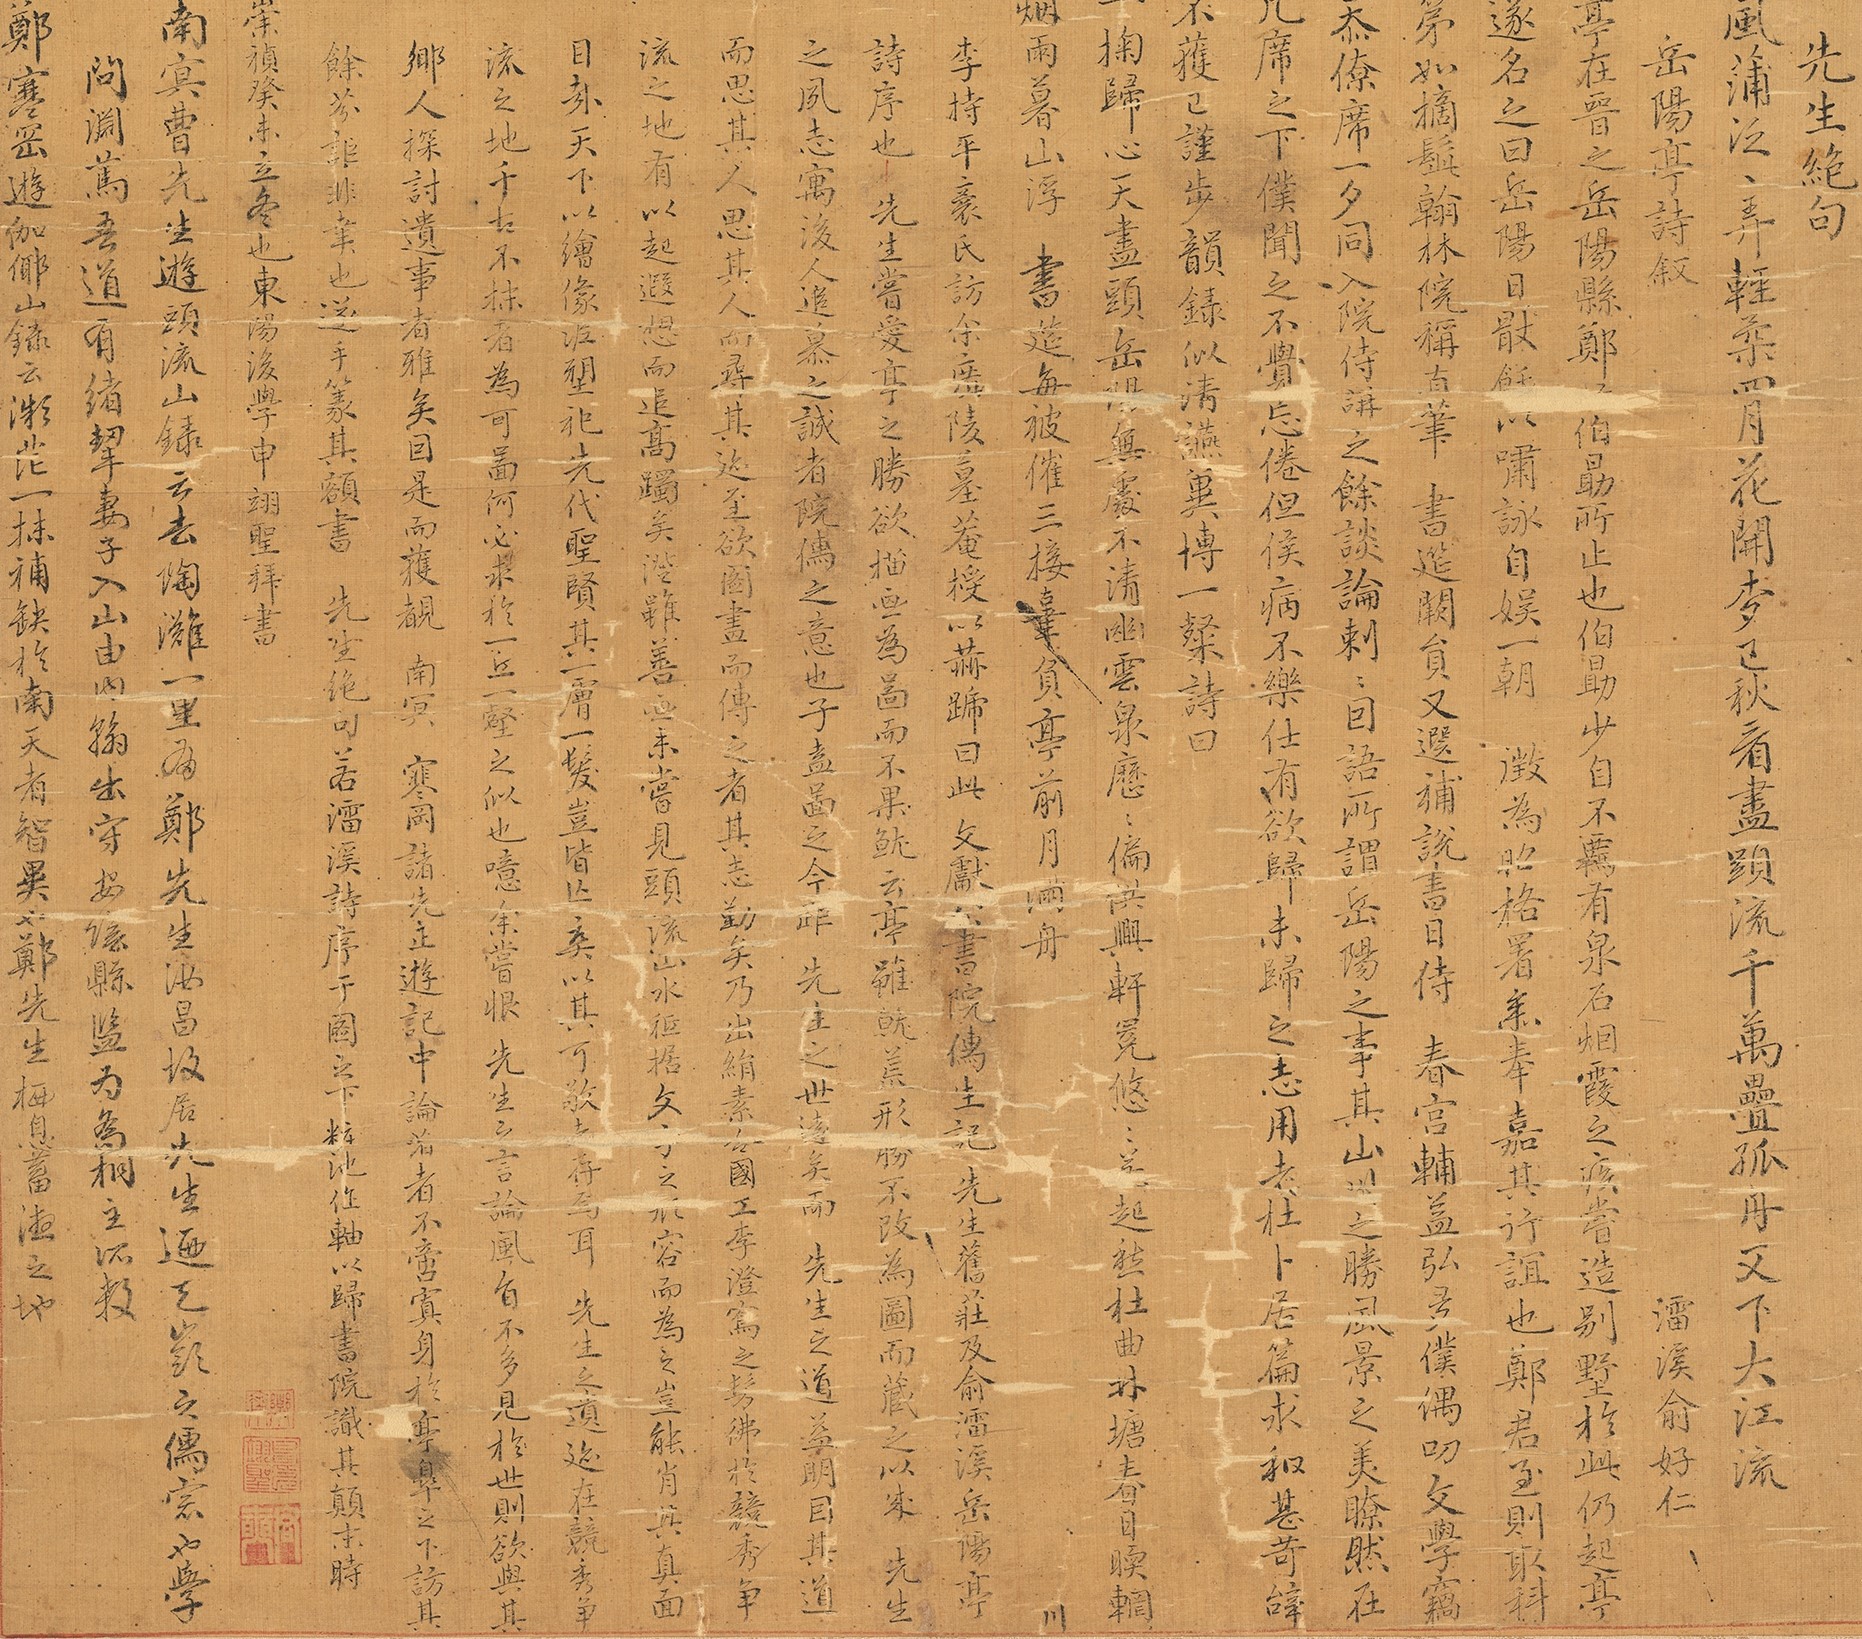 先生絶句
風蒲泛〻弄輕柔四月花開麥已秋看盡頭流千萬疊孤舟又下大江流
岳陽亭詩叙 㵢溪俞好仁
亭在晋之岳陽縣鄭 伯勗所止也伯勗少自不羈有泉石烟霞之疾嘗造別墅於此仍起亭
遂名之曰岳陽日觴 以嘯詠自娱一朝 徵為昭格署參奉嘉其行誼也鄭君至則取科
第如摘髭翰林院稱直筆 書筵闕員又選補說書日侍 春宮輔益弘 僕偶叨文學竊
忝僚席一夕同入院侍講之餘談論剌〻因語所謂岳陽之事其山 之勝風景之美瞭然在
几席之下僕聞之不覺忘倦但侯病不樂仕有欲歸未歸之志用老杜卜居篇求和甚苛辭
不獲已謹步韻錄似清讌奠博一粲詩曰
一掬歸心天盡頭岳陽無處不清幽雲泉歷〻偏供興軒冕悠〻 起愁杜曲林塘春日暖輞川
烟雨暮山浮 書筵每被催三接辜負亭前月滿舟
李持平 氏訪余廣陵墓菴授以赫蹄曰此 文獻公書院儒生記 先生舊莊及俞㵢溪岳陽亭
詩序也 先生嘗愛亭之勝欲描畫為圖而不果就云亭雖就荒形勝不改為圖而藏之以成 先生
之夙志寓後人追慕之誠者院儒之意也子盍圖之今距 先生之世遠矣而 先生之道益明因其道
而思其人思其人而尋其迹至欲圖畫而傳之者其志勤矣乃出絹素令國工李澄寫之髣彿於競秀争
流之地有以起遐想而追高躅矣澄雖善畫未嘗見頭流山水秪据文字之形容而為之豈能肖其真面
目耶天下以繪像泥塑祀先代聖賢其一膚一髮豈皆 矣以其可敬者存焉耳 先生之遺迹在競秀争
流之地千古不抹者為可圖何必求於一丘一壑之似也噫余嘗恨 先生之言論風旨不多見於世則欲與其
鄉人探討遺事者雅矣因是而獲覩 南冥 寒岡諸先正遊記中論著者不啻寘身於亭皐之下訪其
餘芬詎非幸也遂手篆其額書 先生絶句若㵢溪詩序于圖之下粧池作軸以歸書院識其顛末時
崇禎癸未立冬也東陽後學申翊聖拜書
南冥曹先生遊頭流山錄云去陶灘一里 鄭先生汝昌故居先生 乃 之儒宗也學
問淵篤吾道有緒挈妻子入山由內翰出守安陰縣 為 主所殺
鄭寒岡遊伽倻山錄云 一抹補缺於南天者智異也鄭先生栖息蓄德之地